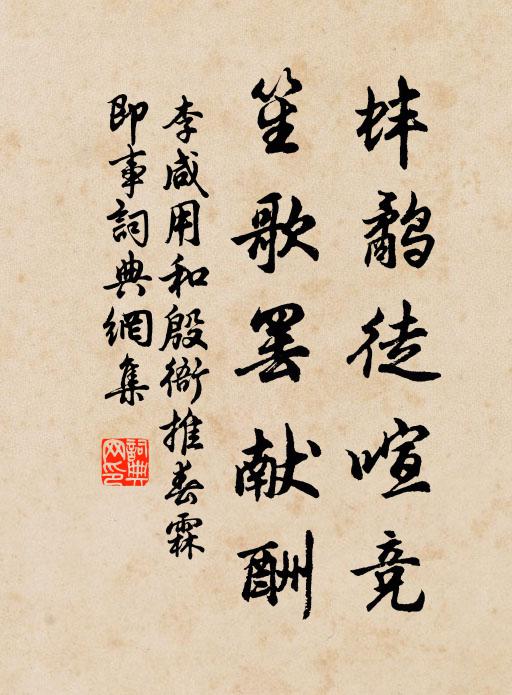 蚌鷸徒喧竞
笙歌罢献酬
李咸用和殷衙推春霖
即事詞典網集
詞典网印